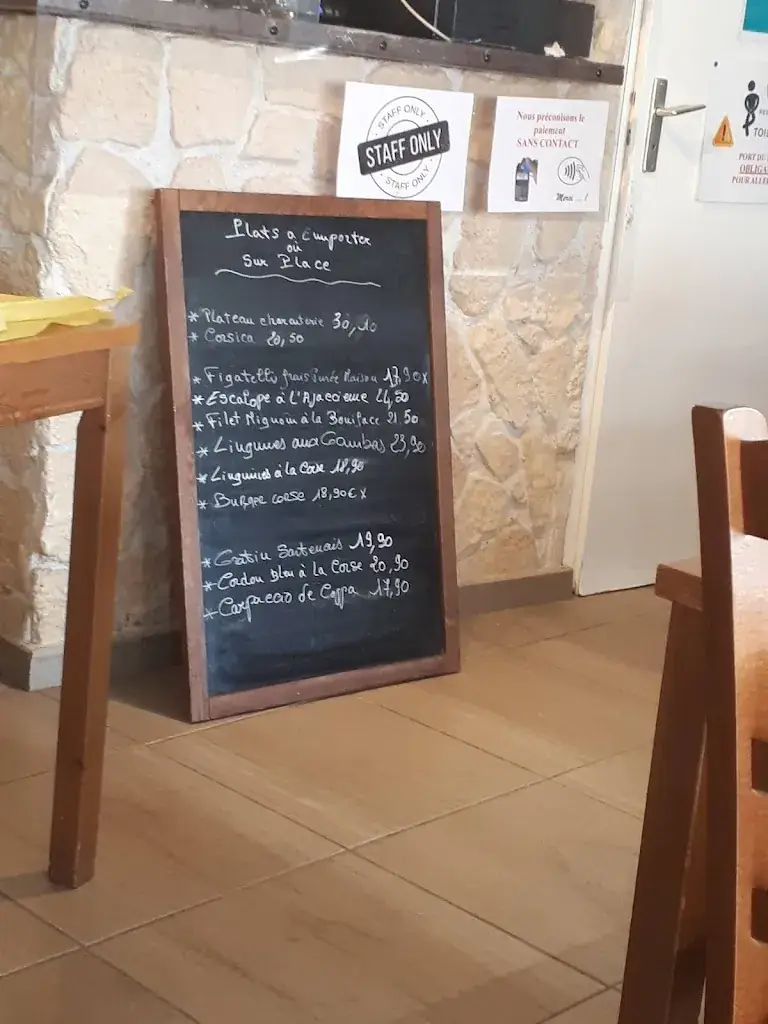 STAFF ONLY
STAFF ONLY
STAFF ONLY
Nous préconisons le
paiement
SANS CONTACT
Merci ... !
TOI
PORT DU
OBLIGA
POUR ALLE
Plats a Emporter
où
Sur Place
* Plateau charcuterie 30,
* Corsica 20,50
* Figatelli frais Purée Maison 17,90x
* Escalope à L'Ajaccienne 24,50
* Filet Mignon à la Boniface 21.50
* Linguines aux Gambas 23,90
* Linguines à la Corse 18,90
* Burger corse 18,90€ x
* Gratin Sartenais 19,90
* Cordon bleu à la Corse 20,90
* Carpaccio de Coppa 17,90